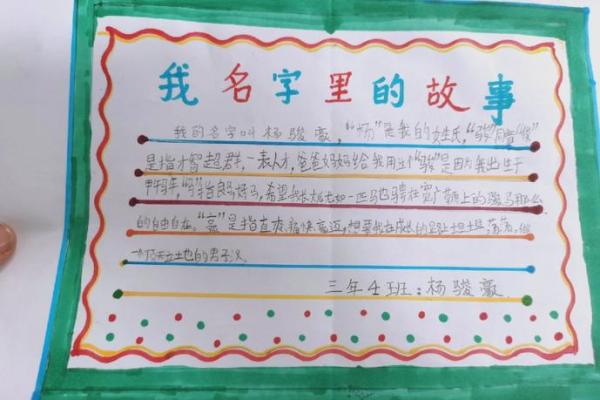 我名字里的故事
我的名字叫杨骏豪，“杨”是我的姓氏，“骏”同音“俊”
是指才智超群，一表人才，爸爸妈妈给我用这个“骏”是因为我出生于
甲午马年，“骏”指良驹好马，希望我长大后如一匹马驰骋在宽广草原上的骏马那么
的自由自在。“豪”是指直爽、痛快、豪迈，想要我在成长的足迹坦坦荡荡，做
一个顶天立地的男子汉。
三年4班：杨骏豪